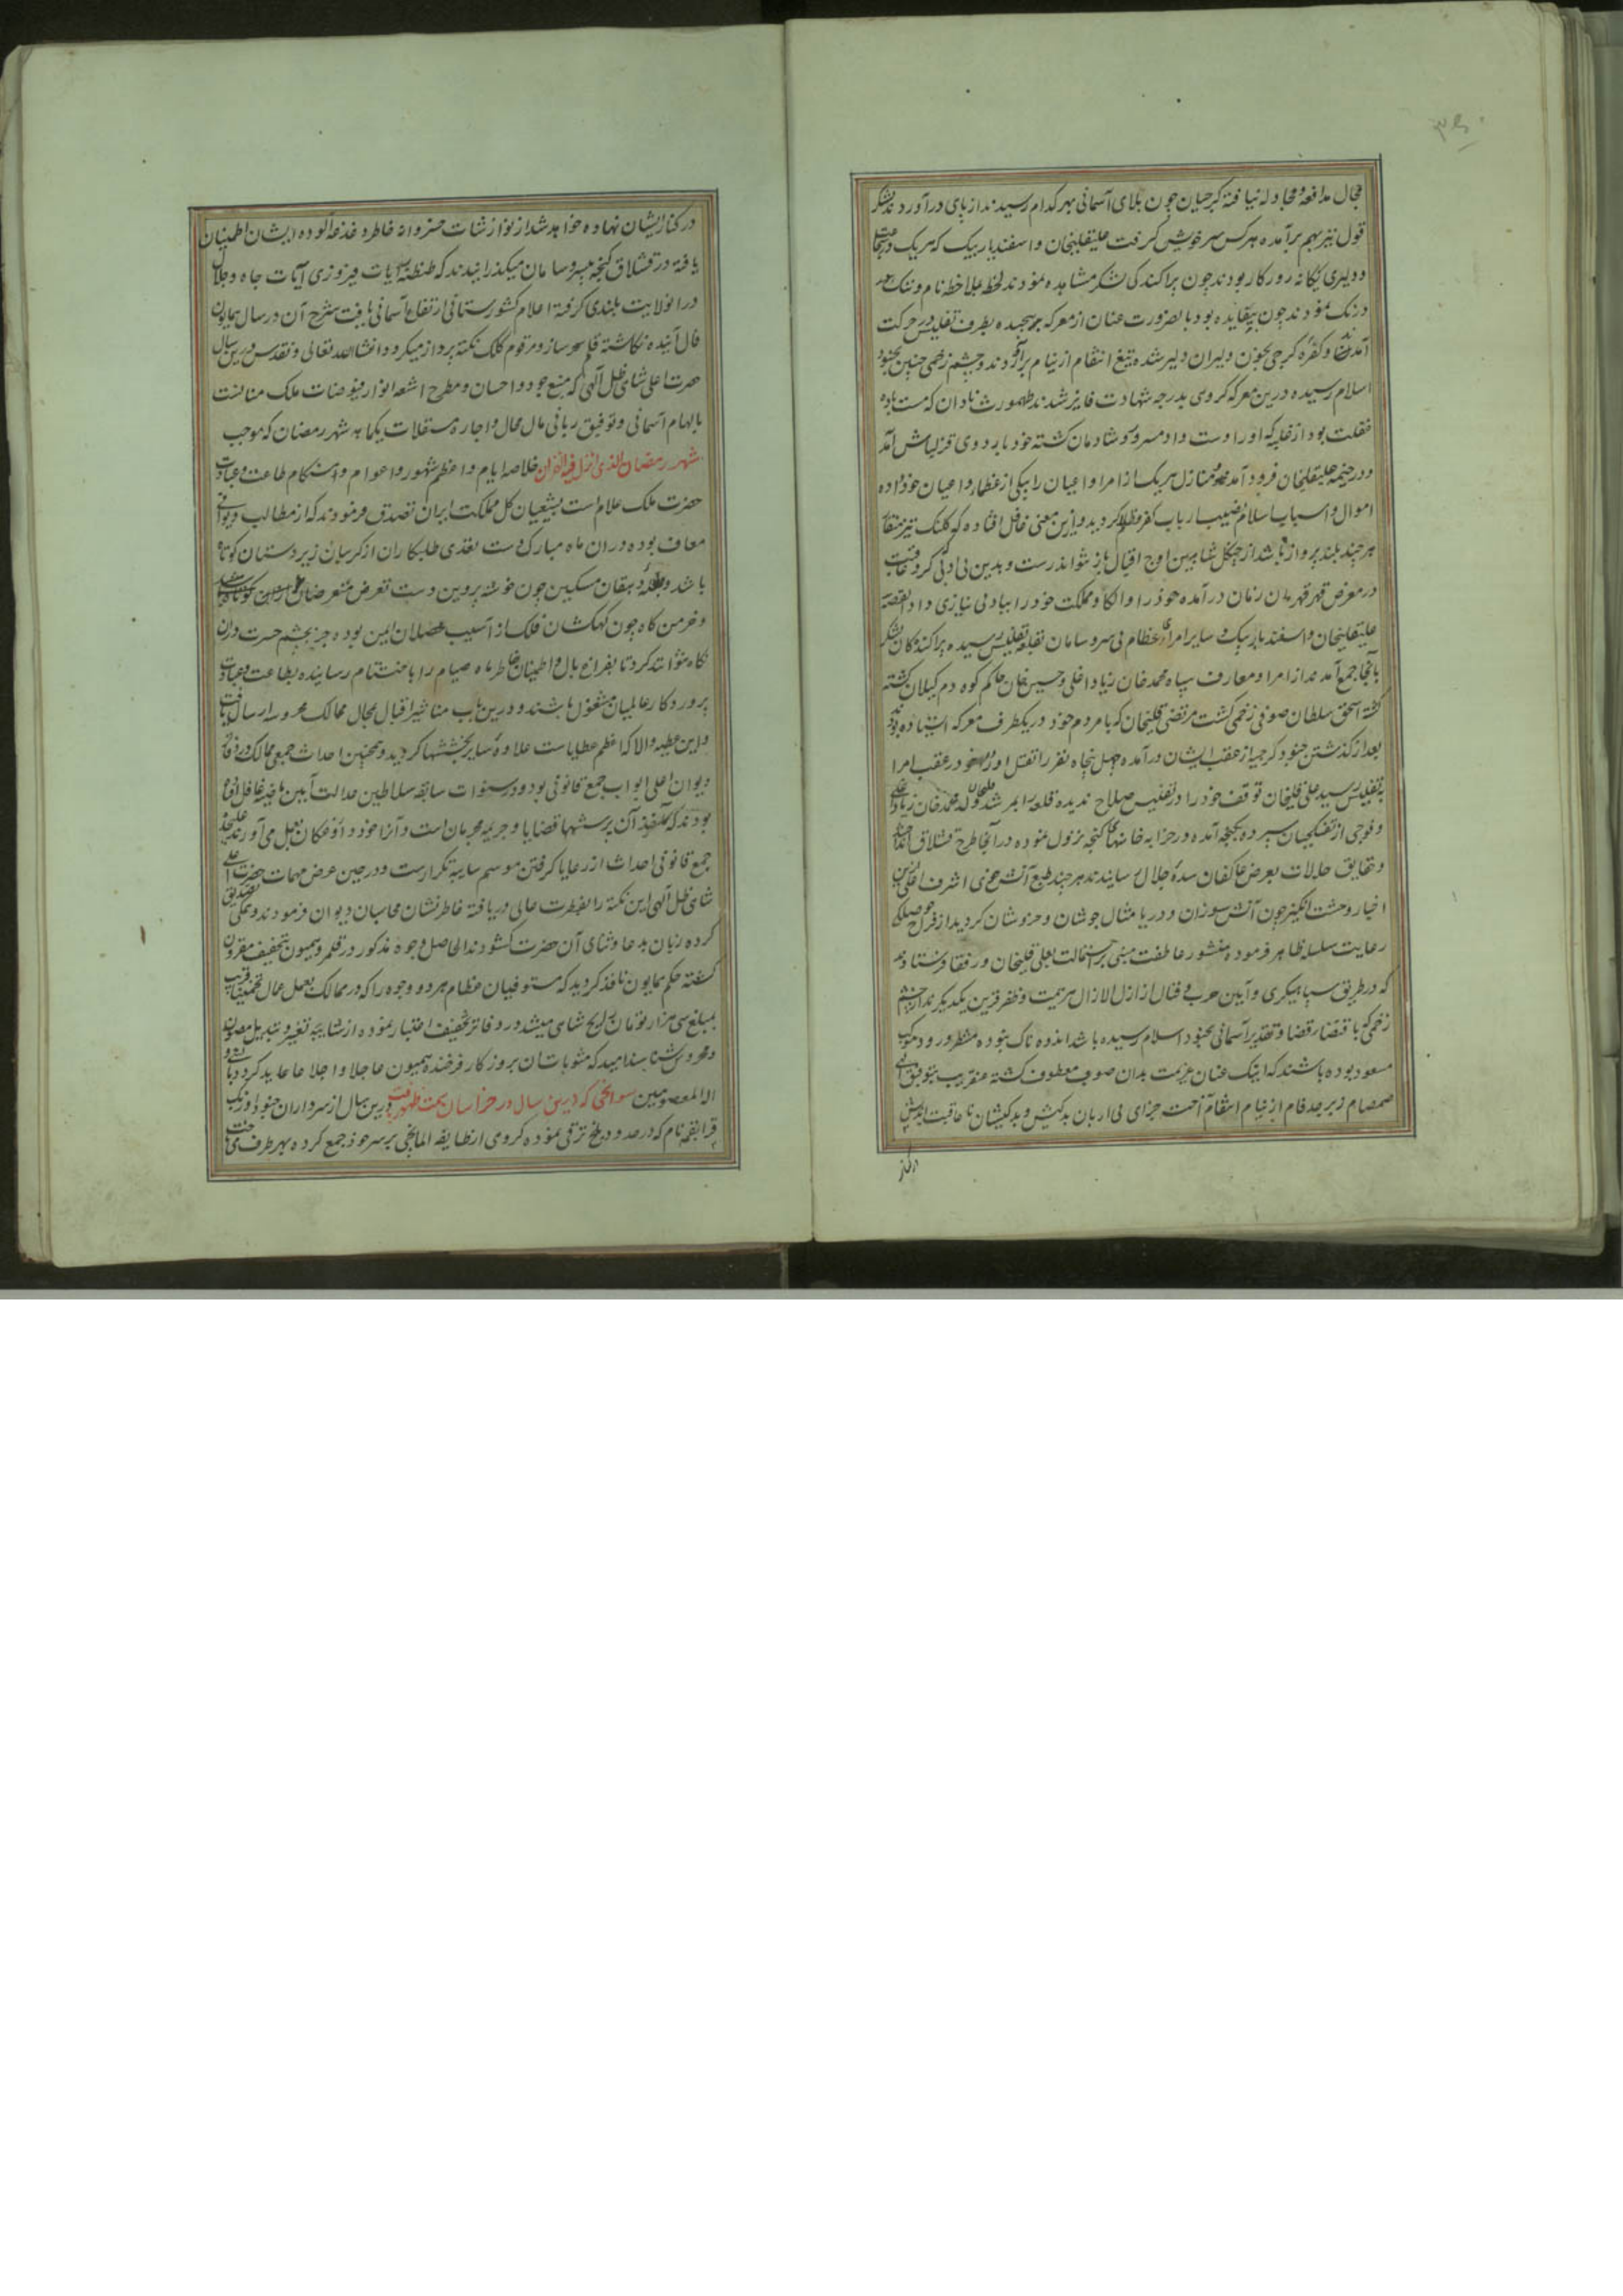 ۳۶۰
مجال مدافعه و مجادله نیافته کرجیان چون بلای آسمانی بهر کدام رسیدند از پای درآوردند لشکر
قول نیز بهم برآمده هر کس سر خویش گرفت علیقلیخان و اسفندیار بیک که هریک در
و دلیری یکانه روزکار بودند چون پراکندگی لشکر مشاهده نمودند لحظه بملاحظه نام و ننک
درنک نمودند چون بیفایده بود بالضرورت عنان از معرکه پیچیده بطرف تفلیس در حرکت
آمدند و کفره کرجی بخون دلیران دلیر شده تیغ انتقام از نیام برآوردند و چشم زخمی چنین بجنود
اسلام رسیده درین معرکه کروی بدرجه شهادت فایز شدند طهمورث نادان که مست باده
غفلت بود از غلبه که او را دست داد مسرور و شادمان کشته خود باردوی قزلباش آمد
و در خیمه علیقلیخان فرود آمده و منازل هریک از امرا و اعیان را بیکی از عظما و اعیان خود داده
اموال و اسباب اسلام نصیب ارباب کفر و ظلام کردید و ازین معنی غافل افتاده که کلنک تیز منقار
هر چند بلند پرواز باشد از چنکل شاهین اوج اقبال باز نتواند رست و بدین بی ادبی که
در معرض قهر قهرمان زمان درآمده خود را و الکا و مملکت خود را بباد بی نیازی داد القصه
علیقلیخان و اسفندیار بیک و سایر امرای عظام بی سر و سامان بقلعه تفلیس رسیده پراکندکان لشکر
بآنجا جمع آمدند از امرا و معارف سپاه محمد خان زیاد اغلی و حسین خان حاکم کوه دم کیلان کشته
کشته اسحق سلطان صوفی زخمی کشت مرتضی قلیخان که با مردم خود در یکطرف معرکه ایستاده بود
بعد از کذشتن جنود کرجیه از عقب ایشان درآمده چهل پنجاه نفر را بقتل آورده خود در عقب امرا
بتفلیس رسید علی قلیخان توقف خود را در تفلیس صلاح ندیده قلعه را بمرشد قلیخان ولد محمد خان زیاد اغلی
و فوجی از تفنکچیان سپرده بکنجه آمده در خرابه خانهای کنجه نزول نموده در آنجا طرح قشلاق
و حقایق حالات بعرض عاکفان سده جلال رسانیدند هر چند طبع آتش خوی اشرف اعلی
اخبار وحشت انگیز چون آتش سوزان و دریا مثال جوشان و خروشان کردید
رعایت سلسله ظاهر فرموده منشور عاطفت مبنی بر استمالت بعلی قلیخان و رفقا فرستادند
که در طریق سپاهیکری و آیین حرب و قتال از ازل الازال هزیمت و ظفر قرین یکدیگرند از چشم
زخمی که باقتضای قضا و تقدیر آسمانی بجنود اسلام رسیده باشد اندوه ناک نبوده منتظر ورود موکب
مسعود بوده باشند که اینک عنان عزیمت بدان صوب معطوف کشته عنقریب بتوفیق الهی
صمصام زبرجد فام از نیام انتقام آخت جزای بی ادبان بدکیش و بدکیشان نا عاقبت اندیش
در کنار
در کنار ایشان نهاده خواهد شد از نوازشات خسروانه خاطر دغدغه آلوده ایشان اطمینان
یافته در قشلاق کنجه بسر و سامان میکذرانیدند که طنطنه رایات فیروزی آیات جاه و جلال
در آن ولایت بلندی کرفته اعلام کشورستانی ارتفاع آسمانی یافت شرح آن در سال همایون
فال آینده نکاشته قلم سحرساز و مرقوم کلک نکته پرداز میکردد انشاالله تعالی و تقدس درین سال
حضرت اعلی شاهی ظل الهی که منبع جود و احسان و مطرح اشعه انوار فیوضات ملک منانست
بالهام آسمانی و توفیق ربانی مال محال و اجاره مستغلات یکماهه شهر رمضان که موجب
شهر رمضان الذی انزل فیه القران خلاصه ایام و اعظم شهور و اعوام و هنکام طاعت و عبادت
حضرت ملک علام است بشیعیان کل مملکت ایران تصدق فرمودند که از مطالب دیوانی
معاف بوده در آن ماه مبارک دست تعدی طلبکاران از کریبان زیردستان کوتاه
باشد و دهقان مسکین چون خوشه پروین دست تعرض متعرضان
و خرمن کاه چون کهکشان فلک از آسیب محصلان ایمن بوده جز بچشم حسرت در آن
نکاه نتوانند کرد تا بفراغ بال و اطمینان خاطر ماه صیام را باختتام رسانیده بطاعت و عبادت
پروردکار عالمیان مشغول باشند و درین باب مناشیر اقبال بمحال ممالک محروسه ارسال یافت
و این عطیه والا که اعظم عطایاست علاوه سایر بخششها کردید و همچنین احداث جمعی ممالک
دیوان اعلی ابواب جمع قانونی بود و در سنوات سابقه سلاطین عدالت آیین
بودند که آن پرسشها قضایا و جریمه مجرمان است و آنرا خود داروغکان بعمل می آورند
جمع قانونی احداث از رعایا کرفتن موسم سایبه تکرارست و در حین عرض مهمات حضرت اعلی
شاهی ظل الهی این نکته را بفطرت عالی دریافته خاطرنشان محاسبان دیوان فرمودند و همکی
کرده زبان بدعا و ثنای آن حضرت کشودند الحاصل وجوه مذکور در قلمرو همیون بتخفیف مقرون
کشته حکم همایون نافذ کردید که مستوفیان عظام هر دو وجوه را که در ممالک بعمل عمال
بمبلغ سی هزار تومان رایج شاهی میشد در دفاتر تخفیف اعتبار نموده از شایبه تغییر و تبدیل مصون
و محروس شناسند امید که مثوبات آن بروزکار فرخنده همیون عاجلا و اجلا عاید کردد
اله المعصومین سوانحی که درین سال در خراسان بمت ظهور یافت درین سال از سرداران جنود اوزبک
قرابقمه نام که در حدود بلخ ترقی نموده کروهی از طایفه المانچی بر سر خود جمع کرده بهر طرف می تاخت